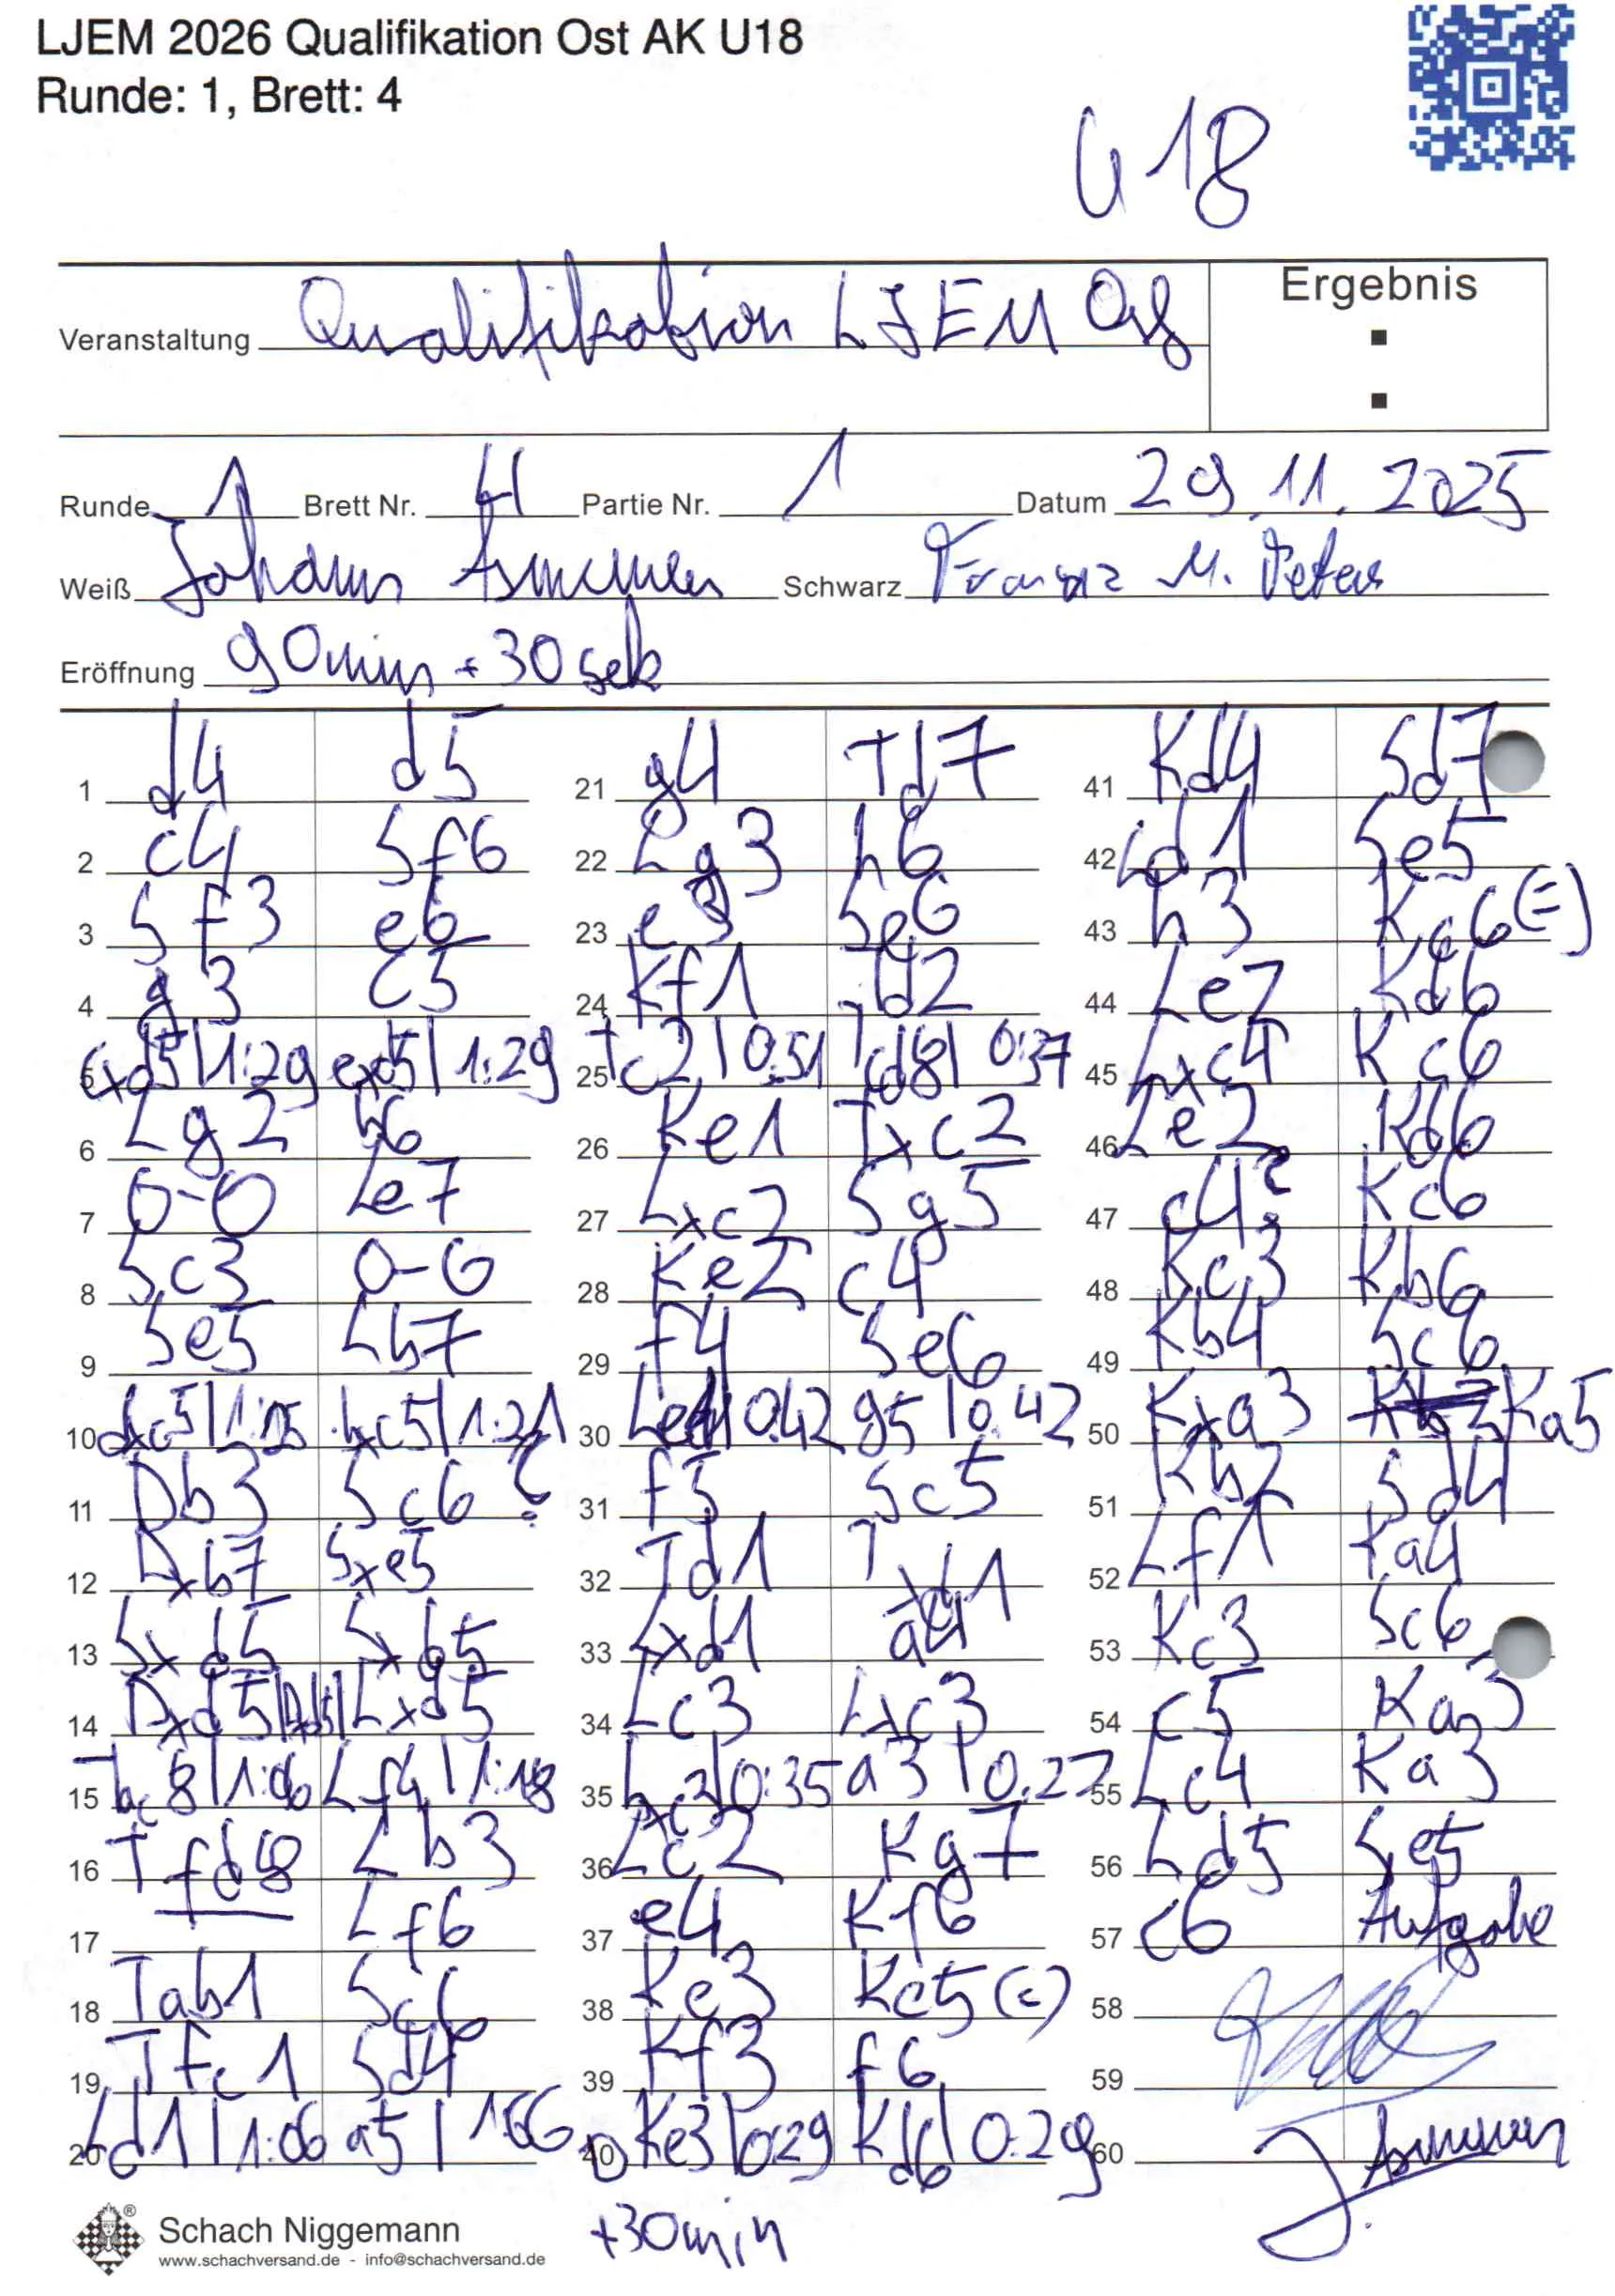 LJEM 2026 Qualifikation Ost AK U18
Runde: 1, Brett: 4
U18
Ergebnis
:
Veranstaltung Qualifikation LJEM Ost
Runde 1 Brett Nr. 4 Partie Nr. 1 Datum 29.11.2025
Weiß Johann Schwarz Franz M. Peters
Eröffnung 90min + 30sek
1 d4 d5 21 g4 Td7 41 Kd4 Sd7
2 c4 Sf6 22 Lg3 h6 42 Ld1 Se5
3 Sf3 e6 23 e3 Se6 43 h3 Kc6(=)
4 g3 c5 24 Kf1 Td2 44 Le2 Kd6
5 cxd5|1:29 exd5|1:29 25 Tc2|0:51 Tcd8|0:37 45 Lxc4 Kc6
6 Lg2 b6 26 Ke1 Txc2 46 Le2 Kd6
7 0-0 Le7 27 Lxc2 Sg5 47 c4? Kc6
8 Sc3 0-0 28 Ke2 c4 48 Kc3 Kb6
9 Se5 Lb7 29 f4 Se6 49 Kb4 Sc6
10 dxc5|1:25 bxc5|1:21 30 0:42 g5|0:42 50 Kxa3 Ka5
11 Db3 Sc6? 31 f5 Sc5 51 Kb2 Sd4
12 Dxb7 Sxe5 32 Td1 Txd1 52 Lf1 Ka4
13 Sxd5 Sxd5 33 Lxd1 a4 53 Kc3 Sc6
14 Dxd5 Lxd5 34 Lc3 Lxc3 54 c5 Ka3
15 8|1:06 Lf4|1:18 35 bxc3|0:35 a3|0:27 55 Lc4 Ka3
16 Tfd8 Lb3 36 Lc2 Kg7 56 Ld5 Se5
17 Lf6 37 e4 Kf6 57 c6 Aufgabe
18 Tab1 Sc6 38 Ke3 Ke5(=) 58
19 Tfc1 Sd4 39 Kf3 f6 59
20 Ld1|1:06 a5|1:06 40 Ke3|0:29 Kd6|0:29 60
+30min
Schach Niggemann
www.schachversand.de - info@schachversand.de